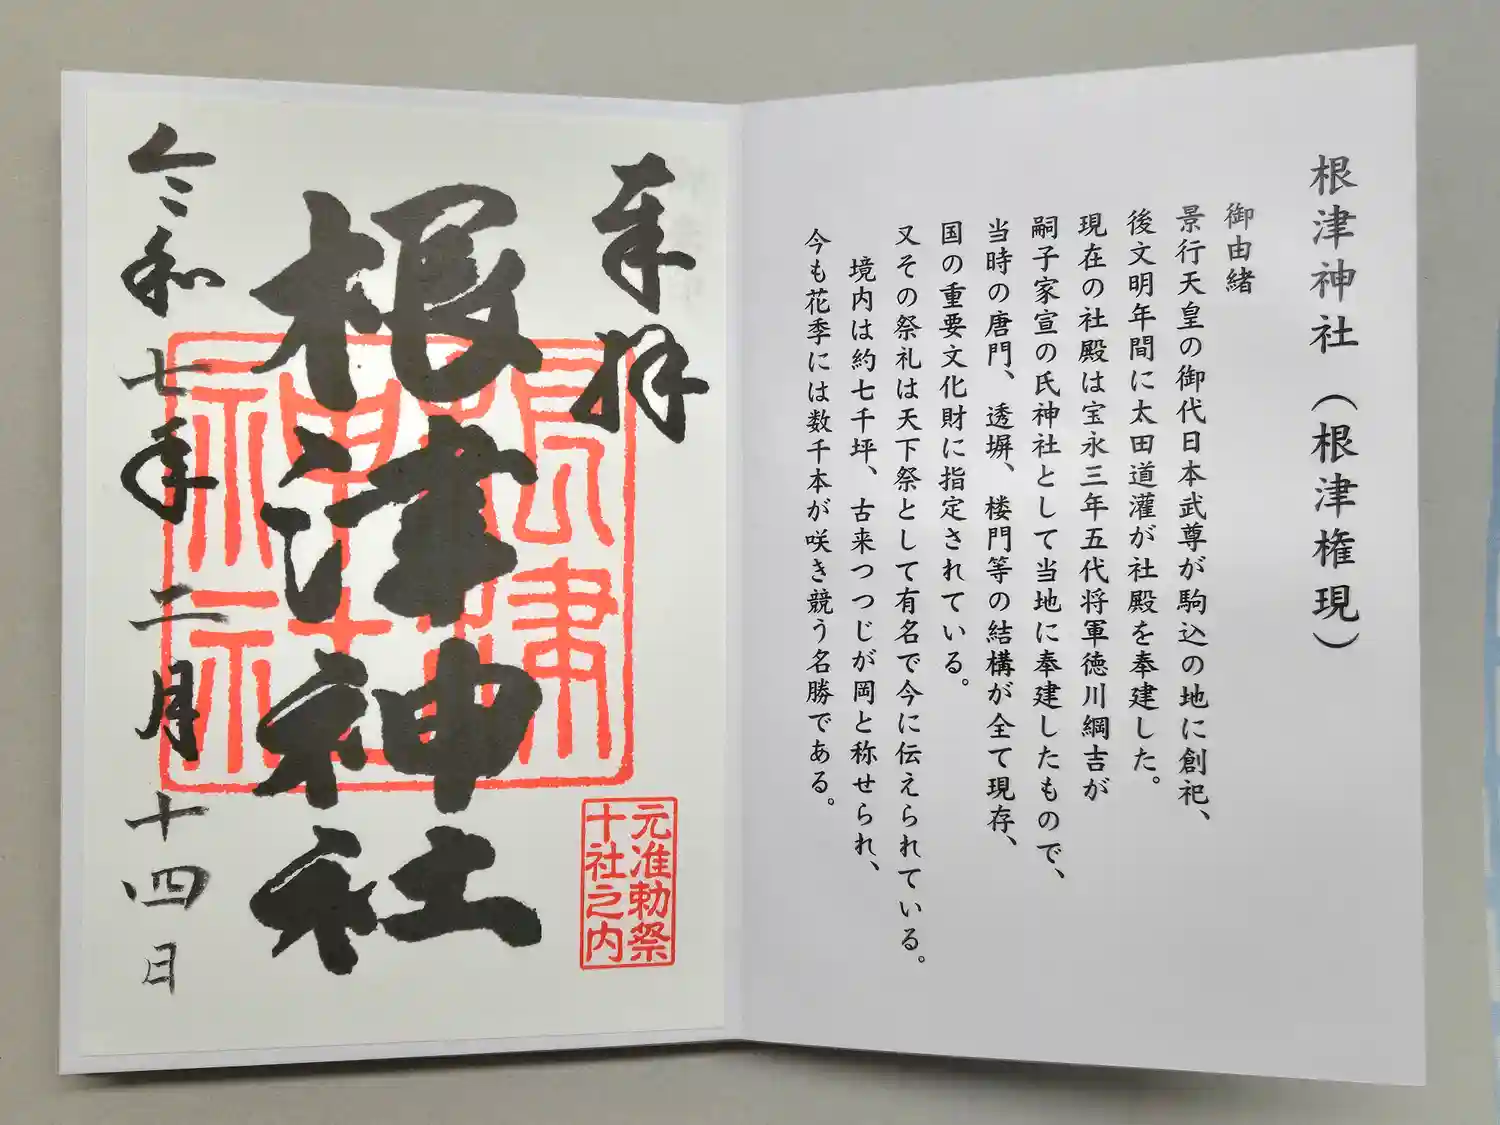 根津神社（根津権現）
御由緒
景行天皇の御代日本武尊が駒込の地に創祀、
後文明年間に太田道灌が社殿を奉建した。
現在の社殿は宝永三年五代将軍徳川綱吉が
嗣子家宣の氏神社として当地に奉建したもので、
当時の唐門、透塀、楼門等の結構が全て現存、
国の重要文化財に指定されている。
又その祭礼は天下祭として有名で今に伝えられている。
境内は約七千坪、古来つつじが岡と称せられ、
今も花季には数千本が咲き競う名勝である。
奉拝
元准勅祭
十社之内
根津神社
根津
神社
令和七年二月十四日